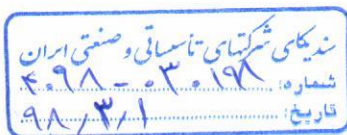 سندیکای شرکتهای تاسیساتی و صنعتی ایران
شماره: ۴۰۹۸-۰۳۰۱۹۸
تاریخ: ۹۸/۳/۱